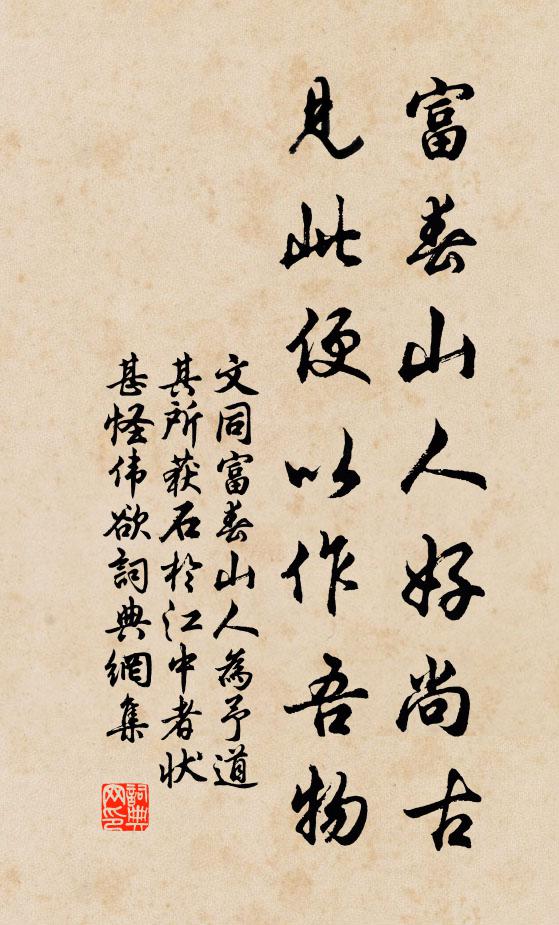 富春山人好尚古
見此便以作吾物
文同富春山人為予道
其所获石於江中者状
甚怪伟欲詞典網集
詞典
网印